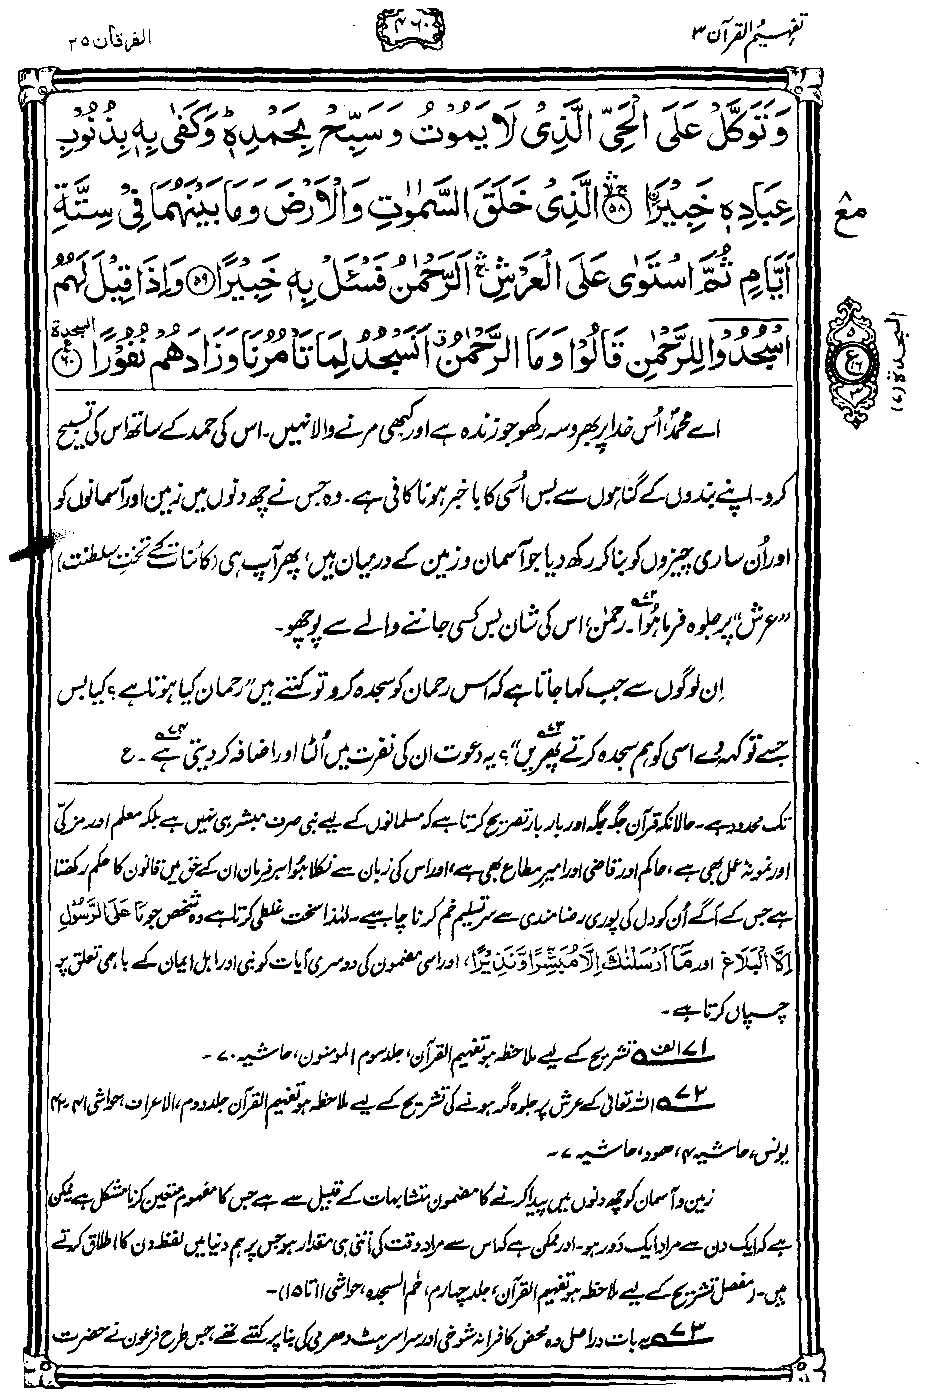 تفہیم القرآن ۳
۴۶۰
الفرقان ۲۵
وَتَوَكَّلْ عَلَى الْحَيِّ الَّذِىْ لَا يَمُوْتُ وَسَبِّحْ بِحَمْدِهٖ ؕ وَكَفٰى بِهٖ بِذُنُوْبِ
عِبَادِهٖ خَبِيْرَا ۚۛ ۙ ﴿۵۸﴾ الَّذِىْ خَلَقَ السَّمٰوٰتِ وَالْاَرْضَ وَمَا بَيْنَهُمَا فِىْ سِتَّةِ
اَيَّامٍ ثُمَّ اسْتَوٰى عَلَى الْعَرْشِ ۛۚ اَلرَّحْمٰنُ فَسْئَلْ بِهٖ خَبِيْرًا ﴿۵۹﴾ وَاِذَا قِيْلَ لَهُمُ
اسْجُدُوْا لِلرَّحْمٰنِ قَالُوْا وَمَا الرَّحْمٰنُ ۗ اَنَسْجُدُ لِمَا تَاْمُرُنَا وَزَادَهُمْ نُفُوْرًا ﴿۶۰﴾ السجدة
مع
۵
ع
۱۶
۳
السجدة (۷)
اے محمدؐ، اُس خدا پر بھروسہ رکھو جو زندہ ہے اور کبھی مرنے والا نہیں۔ اس کی حمد کے ساتھ اس کی تسبیح
کرو۔ اپنے بندوں کے گناہوں سے بس اُسی کا باخبر ہونا کافی ہے۔ وہ جس نے چھ دنوں میں زمین اور آسمانوں کو
اور اُن ساری چیزوں کو بنا کر رکھ دیا جو آسمان و زمین کے درمیان ہیں، پھر آپ ہی (کائنات کے تختِ سلطنت)
”عرش“ پر جلوہ فرما ہُوا۔۷۲ رحمٰن، اس کی شان بس کسی جاننے والے سے پوچھو۔
اِن لوگوں سے جب کہا جاتا ہے کہ اس رحمان کو سجدہ کرو تو کہتے ہیں ”رحمان کیا ہوتا ہے؟ کیا بس
جسے تو کہہ دے اسی کو ہم سجدہ کرتے پھریں“؟۷۳ یہ دعوت ان کی نفرت میں اُلٹا اور اضافہ کر دیتی ہے۔۷۴ ع
تک محدود ہے۔ حالانکہ قرآن جگہ جگہ اور بار بار تصریح کرتا ہے کہ مسلمانوں کے لیے نبی صرف مبشر ہی نہیں ہے بلکہ معلم اور مزکّی
اور نمونۂ عمل بھی ہے، حاکم اور قاضی اور امیرِ مطاع بھی ہے، اور اس کی زبان سے نکلا ہُوا ہر فرمان ان کے حق میں قانون کا حکم رکھتا
ہے جس کے آگے اُن کو دل کی پوری رضامندی سے سرِ تسلیم خم کرنا چاہیے۔ لہٰذا سخت غلطی کرتا ہے وہ شخص جو مَا عَلَى الرَّسُوْلِ
اِلَّا الْبَلَاغُ اور مَآ اَرْسَلْنٰكَ اِلَّا مُبَشِّرًا وَّنَذِيْرًا، اور اسی مضمون کی دوسری آیات کو نبی اور اہل ایمان کے باہمی تعلق پر
چسپاں کرتا ہے۔
۷۱ الف تشریح کے لیے ملاحظہ ہو تفہیم القرآن، جلد سوم، المومنون، حاشیہ ۷۰۔
۷۲ اللہ تعالیٰ کے عرش پر جلوہ گر ہونے کی تشریح کے لیے ملاحظہ ہو تفہیم القرآن جلد دوم، الاعراف، حواشی ۴۱-۴۲،
یونس، حاشیہ ۴، ہود، حاشیہ ۷۔
زمین و آسمان کو چھ دنوں میں پیدا کرنے کا مضمون متشابہات کے قبیل سے ہے جس کا مفہوم متعین کرنا مشکل ہے۔ ممکن
ہے کہ ایک دن سے مراد ایک دَور ہو۔ اور ممکن ہے کہ اس سے مراد وقت کی اُتنی ہی مقدار ہو جس پر ہم دنیا میں لفظ دن کا اطلاق کرتے
ہیں۔ (مفصل تشریح کے لیے ملاحظہ ہو تفہیم القرآن، جلد چہارم، حٰم السجدہ، حواشی ۱۱ تا ۱۵)۔
۷۳ یہ بات دراصل وہ محض کافرانہ شوخی اور سراسر ہٹ دھرمی کی بنا پر کہتے تھے، جس طرح فرعون نے حضرت